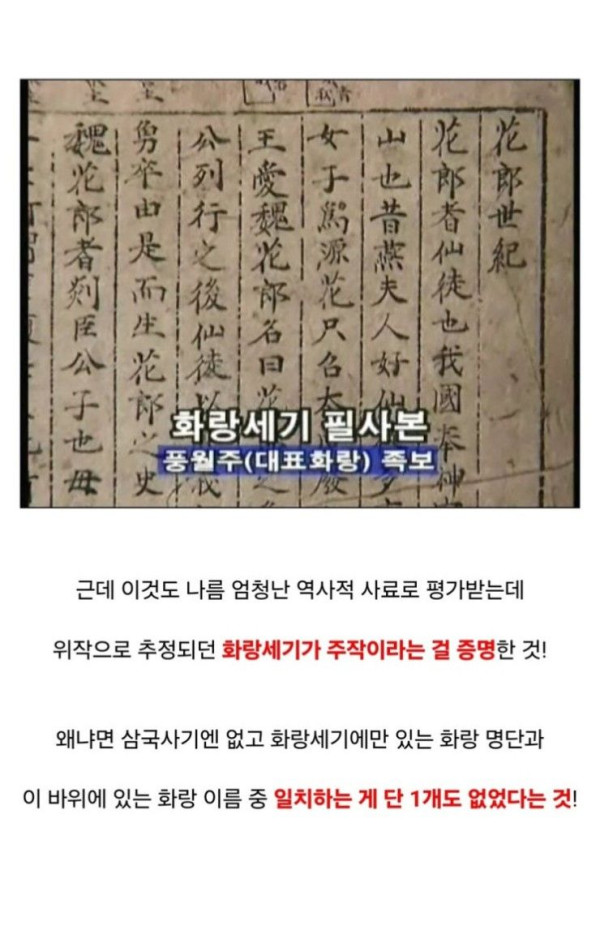 花郎世紀
花郎者仙徒也我國奉神
山也昔燕夫人好仙
女子爲源花只召太廢
王愛魏花郎名曰花之
公列行之後仙徒以
勇卒由是而生花郎之史
魏花郎者剡臣公子也母
화랑세기 필사본
풍월주(대표화랑) 족보
근데 이것도 나름 엄청난 역사적 사료로 평가받는데
위작으로 추정되던 화랑세기가 주작이라는 걸 증명한 것!
왜냐면 삼국사기엔 없고 화랑세기에만 있는 화랑 명단과
이 바위에 있는 화랑 이름 중 일치하는 게 단 1개도 없었다는 것!